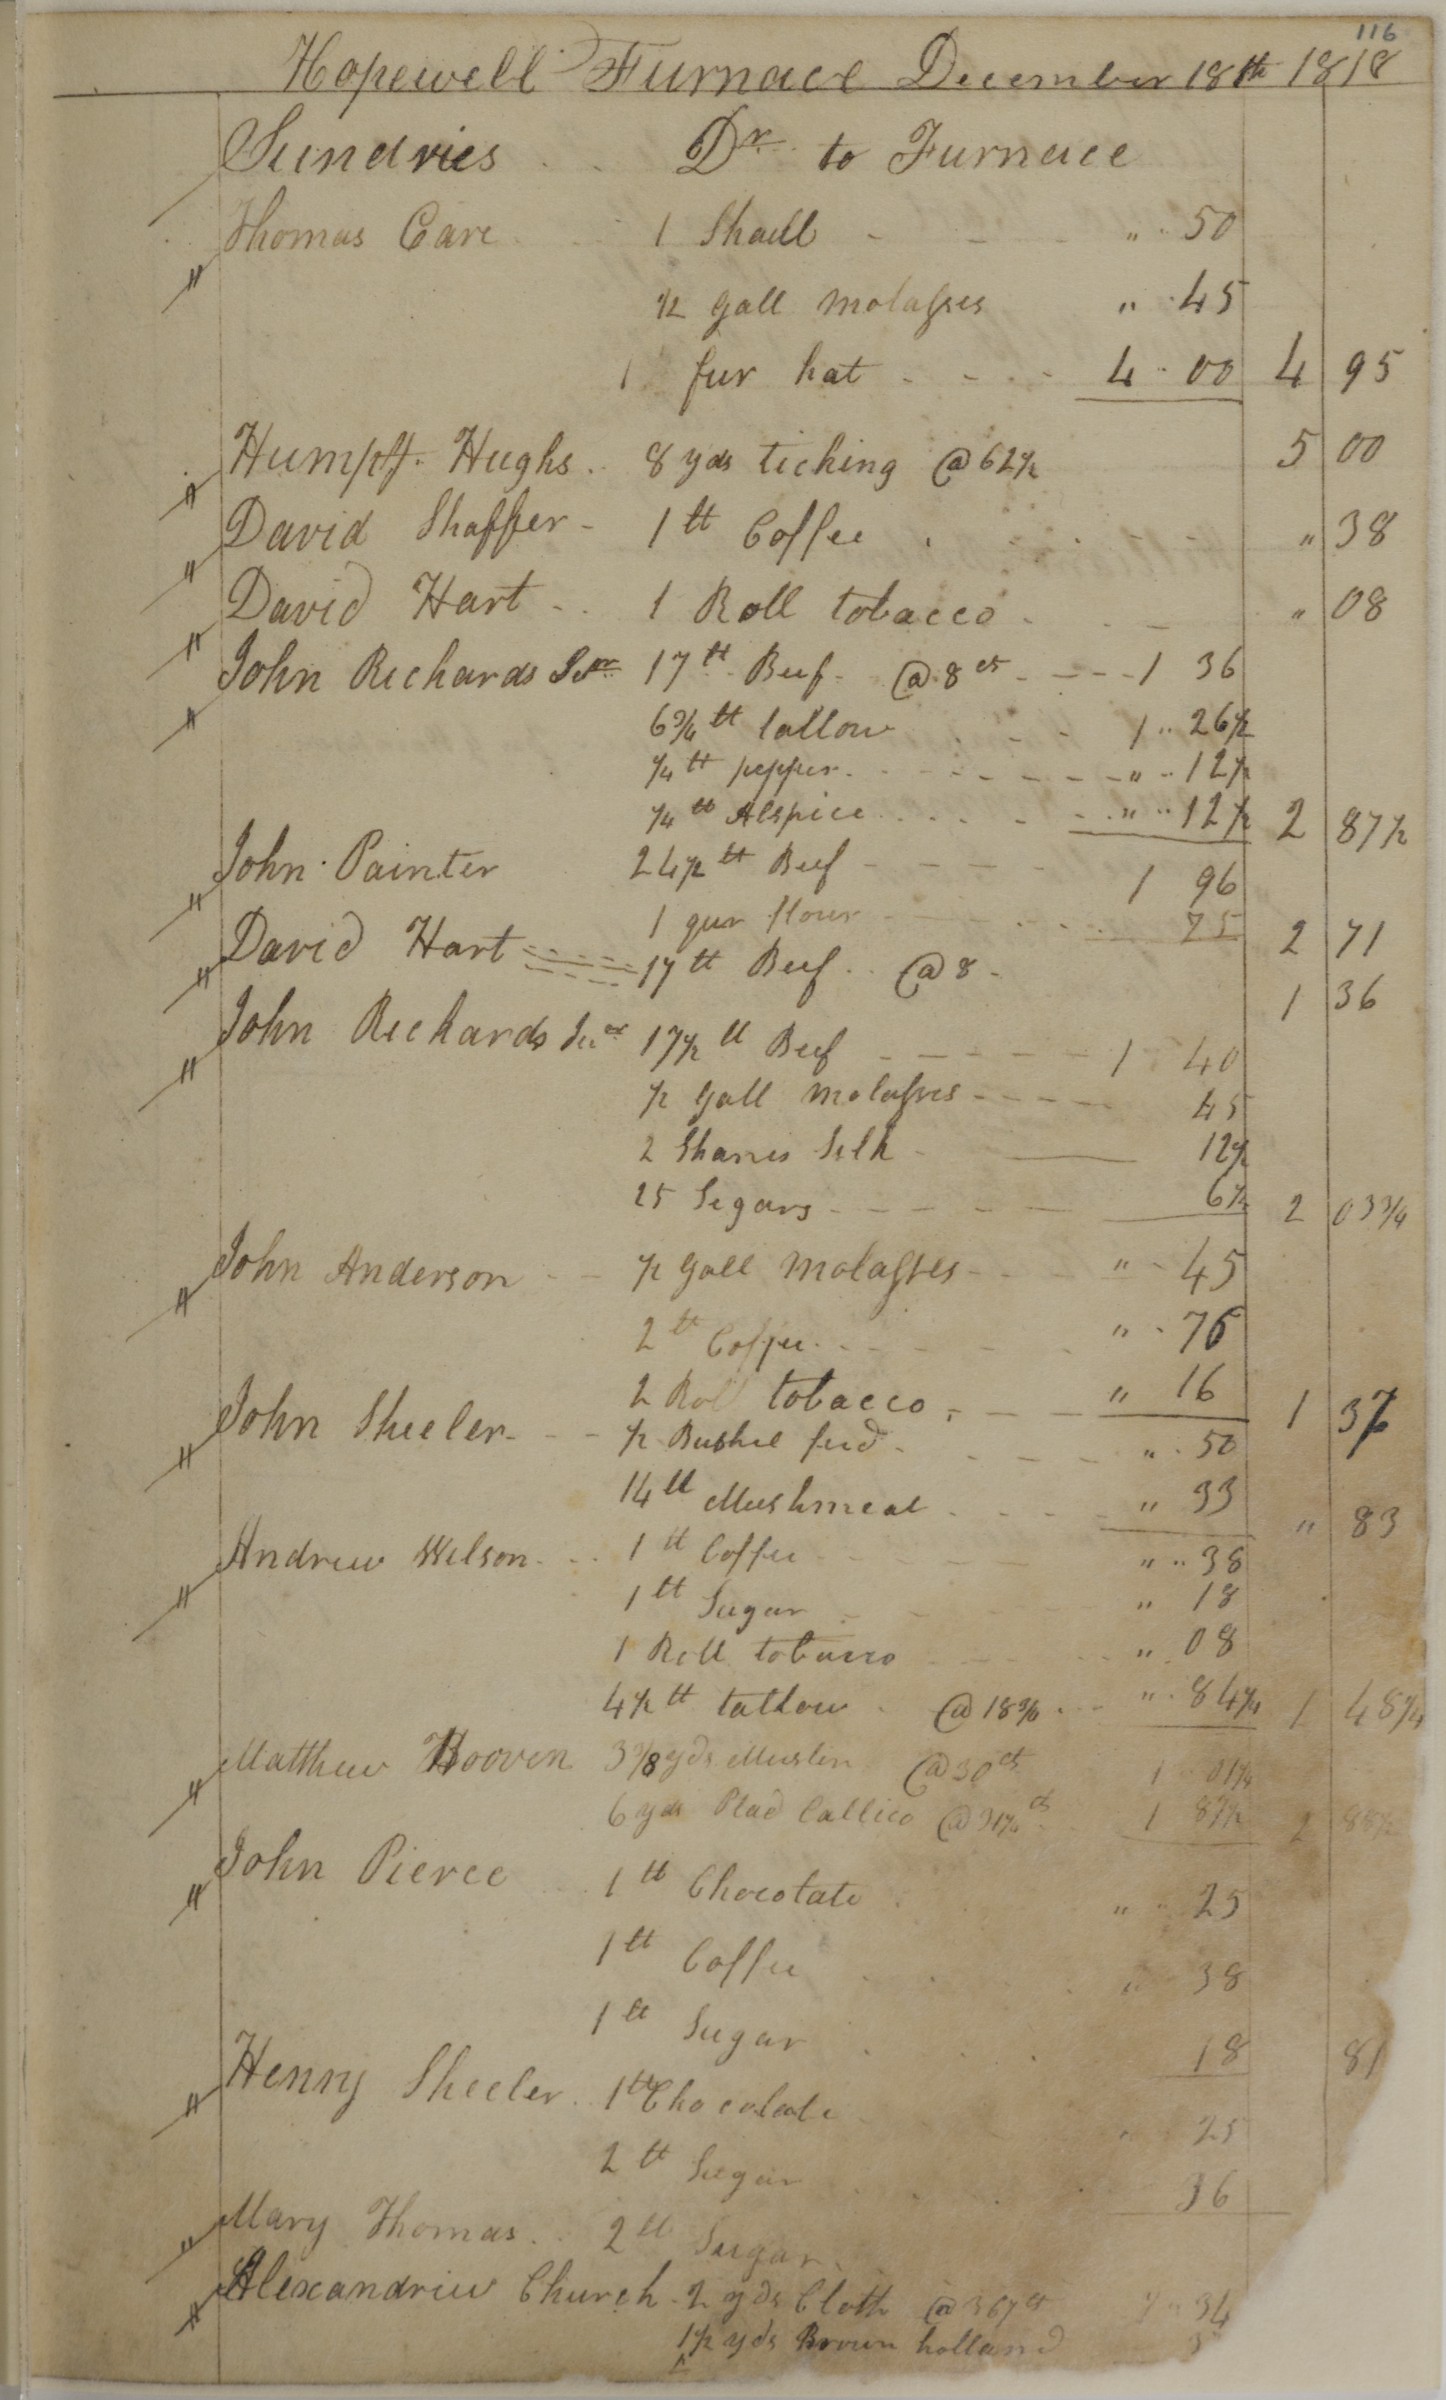 116
Hopewell Furnace December 18th 1818
Sundries Dr to Furnace
Thomas Care 1 Shall " 50
1/2 gall molasses " 45
1 fur hat 4 00 4 95
Humph. Hughs 8 yds ticking @ 62 1/2 5 00
David Shaffer 1 lb Coffee " 38
David Hart 1 Roll tobacco " 08
John Richards Senr 17 lb Beef @ 8 cts 1 36
6 3/4 lb tallow 1 26 1/2
1/4 lb pepper " 12 1/2
1/4 lb Alspice " 12 1/2 2 87 1/2
John Painter 24 1/2 lb Beef 1 96
1 qur flour 75 2 71
David Hart 17 lb Beef @ 8 1 36
John Richards Junr 17 1/2 lb Beef 1 40
1/2 gall molasses 45
2 Skanes Silk 12 1/2
25 Segars 6 1/4 2 03 3/4
John Anderson 1/2 gall molasses " 45
2 lb Coffee " 76
2 Roll tobacco " 16 1 37
John Sheeler 1/2 Bushel feed " 50
14 lb Mushmeal " 33 " 83
Andrew Wilson 1 lb Coffee " 38
1 lb Sugar " 18
1 Roll tobacco " 08
4 1/2 lb tallow @ 18 3/4 " 84 1/4 1 48 1/4
Matthew Hooven 3 3/8 yds Muslin @ 30 cts 1 01 1/4
6 yds Plad Callico @ 31 1/4 cts 1 87 1/2 2 88 1/2
John Pierce 1 lb Chocolate " 25
1 lb Coffee " 38
1 lb Sugar 18 81
Henny Sheeler 1 lb Chocolate " 25
2 lb Sugar 36
Mary Thomas 2 lb Sugar
Alexandriw Church 2 yds Cloth @ 367 cts 7 34
1 1/2 yds Brown holland